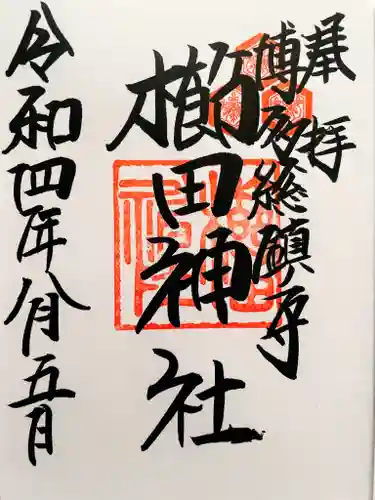 奉拝
博多総鎮守
櫛田神社
令和四年八月五日